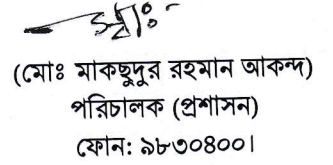 স্বাঃ-
(মোঃ মাকছুদুর রহমান আকন্দ)
পরিচালক (প্রশাসন)
ফোন: ৯৮৩০৪০০।